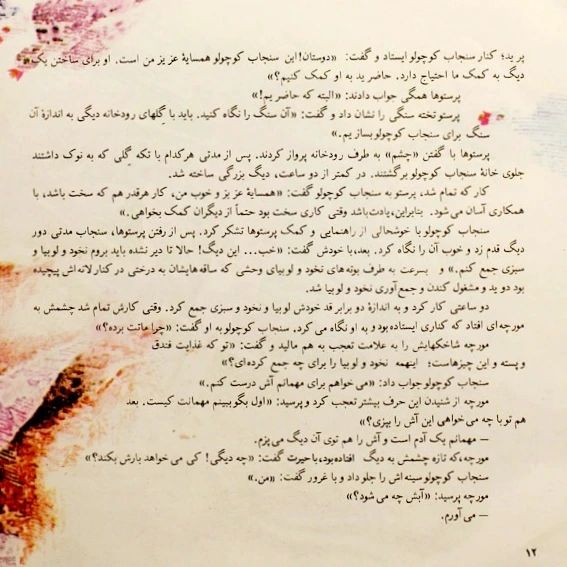 پرید؛ کنار سنجاب کوچولو ایستاد و گفت: «دوستان! این سنجاب کوچولو همسایهٔ عزیز من است. او برای ساختن یک
دیگ به کمک ما احتیاج دارد. حاضرید به او کمک کنیم؟»
پرستوها همگی جواب دادند: «البته که حاضریم!»
پرستو تخته سنگی را نشان داد و گفت: «آن سنگ را نگاه کنید. باید با گلهای رودخانه دیگی به اندازهٔ آن
سنگ برای سنجاب کوچولو بسازیم.»
پرستوها با گفتن «چشم» به طرف رودخانه پرواز کردند. پس از مدتی هرکدام با تکه گلی که به نوک داشتند
جلوی خانهٔ سنجاب کوچولو برگشتند. در کمتر از دو ساعت، دیگ بزرگی ساخته شد.
کار که تمام شد، پرستو به سنجاب کوچولو گفت: «همسایهٔ عزیز و خوب من، کار هرقدر هم که سخت باشد، با
همکاری آسان می‌شود. بنابراین، یادت باشد وقتی کاری سخت بود حتماً از دیگران کمک بخواهی.»
سنجاب کوچولو با خوشحالی از راهنمایی و کمک پرستوها تشکر کرد. پس از رفتن پرستوها، سنجاب مدتی دور
دیگ قدم زد و خوب آن را نگاه کرد. بعد، با خودش گفت: «خب... این دیگ! حالا تا دیر نشده باید بروم نخود و لوبیا و
سبزی جمع کنم.» و بسرعت به طرف بوته‌های نخود و لوبیای وحشی که ساقه هایشان به درختی در کنار لانه اش پیچیده
بود دوید و مشغول کندن و جمع آوری نخود و لوبیا شد.
دو ساعتی کار کرد و به اندازهٔ دو برابر قد خودش لوبیا و نخود و سبزی جمع کرد. وقتی کارش تمام شد چشمش به
مورچه ای افتاد که کناری ایستاده بود و به او نگاه می کرد. سنجاب کوچولو به او گفت: «چرا ماتت برده؟»
مورچه شاخکهایش را به علامت تعجب به هم مالید و گفت: «تو که غذایت فندق
و پسته و این چیزهاست؛ اینهمه نخود و لوبیا را برای چه جمع کرده ای؟»
سنجاب کوچولو جواب داد: «می خواهم برای مهمانم آش درست کنم.»
مورچه از شنیدن این حرف بیشتر تعجب کرد و پرسید: «اول بگو ببینم مهمانت کیست. بعد
هم تو با چه می خواهی این آش را بپزی؟»
— مهمانم یک آدم است و آش را هم توی آن دیگ می پزم.
مورچه، که تازه چشمش به دیگ افتاده بود، با حیرت گفت: «چه دیگی! کی می خواهد بارش بکند؟»
سنجاب کوچولو سینه اش را جلو داد و با غرور گفت: «من.»
مورچه پرسید: «آبش چه می شود؟»
— می آورم.
۱۲